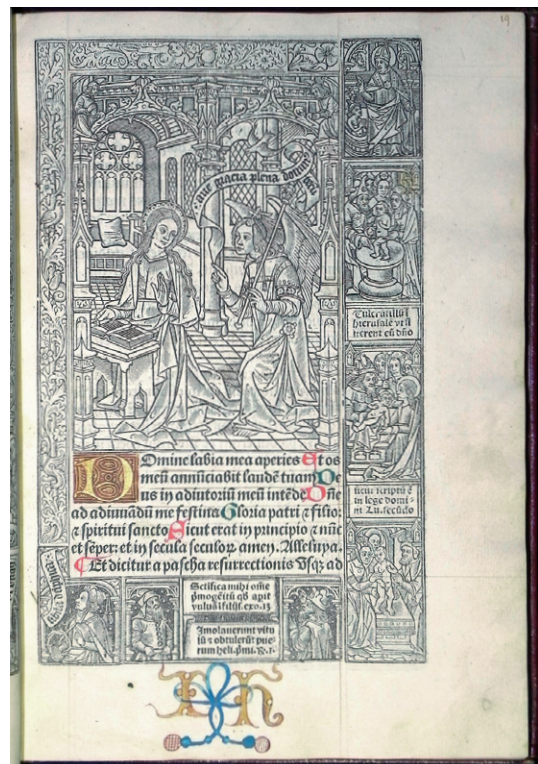 19
aue gracia plena domin tecū
Tulerūt illū ī
hierusalē vt si
sterent eū dño
Domine labia mea aperies Et os
meū annūciabit laudē tuam De
us in adiutoriū meū intēde Dñe
ad adiuuādū me festina Gloria patri ⁊ filio:
⁊ spiritui sancto Sicut erat in principio ⁊ nūc
et sēper: et in secula seculoꝝ amen. Alleluya.
Et dicitur a pascha resurrectionis Vsqꝫ ad
sicut scriptū ē
in lege domi-
ni Lu. secūdo
Sctifica mihi oñe
p̄mogēitū qď apit
vuluā ī filijs. exo. 13
Imolauerunt vitu
lū ⁊ obtulerūt pue-
rum heli. p̄mi. R. 1.